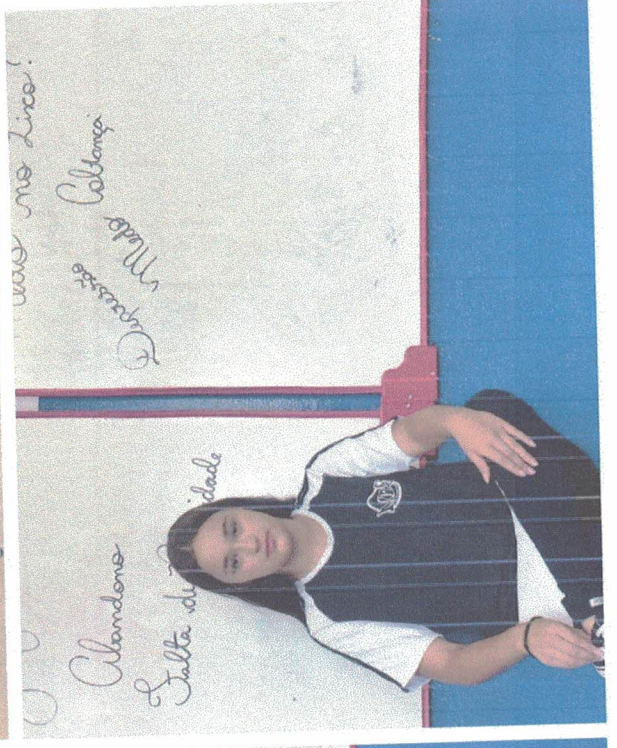 no Lixo!
Abandono
Falta de
Depressão
Medo
Cobrança